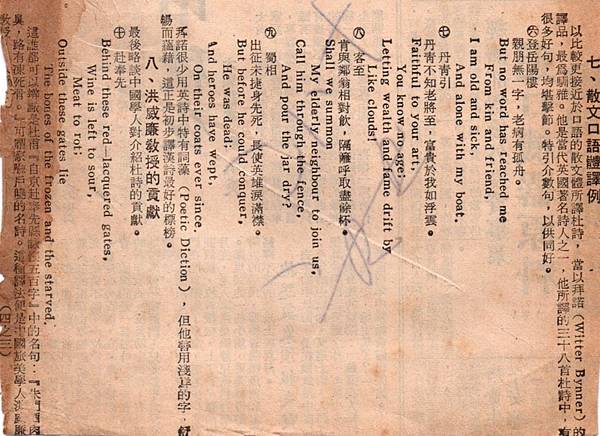 七、散文口語體譯例
以比較更接近於口語的散文體所譯杜詩，當以拜諾（Witter Bynner）的
譯品，最爲馴雅。他是當代英國著名詩人之一，他所譯的三十八首杜詩中，有
很多好句，均堪擊節。特引介數句，以供同好。
㈥登岳陽樓
親朋無一字，老病有孤舟。
But no word has reached me
From kin and friend,
I am old and sick,
And alone with my boat.
㈦丹青引
丹青不知老將至，富貴於我如浮雲。
Faithful to your art,
You know no age:
Letting wealth and fame drift by
Like clouds!
㈧客至
肯與鄰翁相對飲，隔籬呼取盡餘杯。
Shall we summon
My elderly neighbour to join us,
Call him through the fence,
And pour the jar dry?
㈨蜀相
出征未捷身先死，長使英雄淚滿襟。
But before he could conquer,
He was dead:
And heroes have wept,
On their coats ever since.
拜諾很少用英詩中特有詞藻（Poetic Diction），但他善用淺
暢而蘊藉，這正是初步譯漢詩最好的標榜。
八、洪威廉敎授的貢獻
最後略談中國學人對介紹杜詩的貢獻。
㈩赴奉先
Behind these red—lacquered gates,
Wine is left to soar,
Meat to rot;
Outside these gates lie
The bones of the frozen and the starved.
這誰都可以辨識是杜甫『自京赴奉先縣詠懷五百字』中的名句：『朱門酒肉
臭，路有凍死骨。』可謂家喻戶曉的名詩。這種譯法便是中國旅美學人
敎授
（四三）